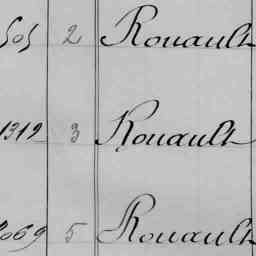 505 2 Rouault
1312 3 Rouault
2069 5 Rouault